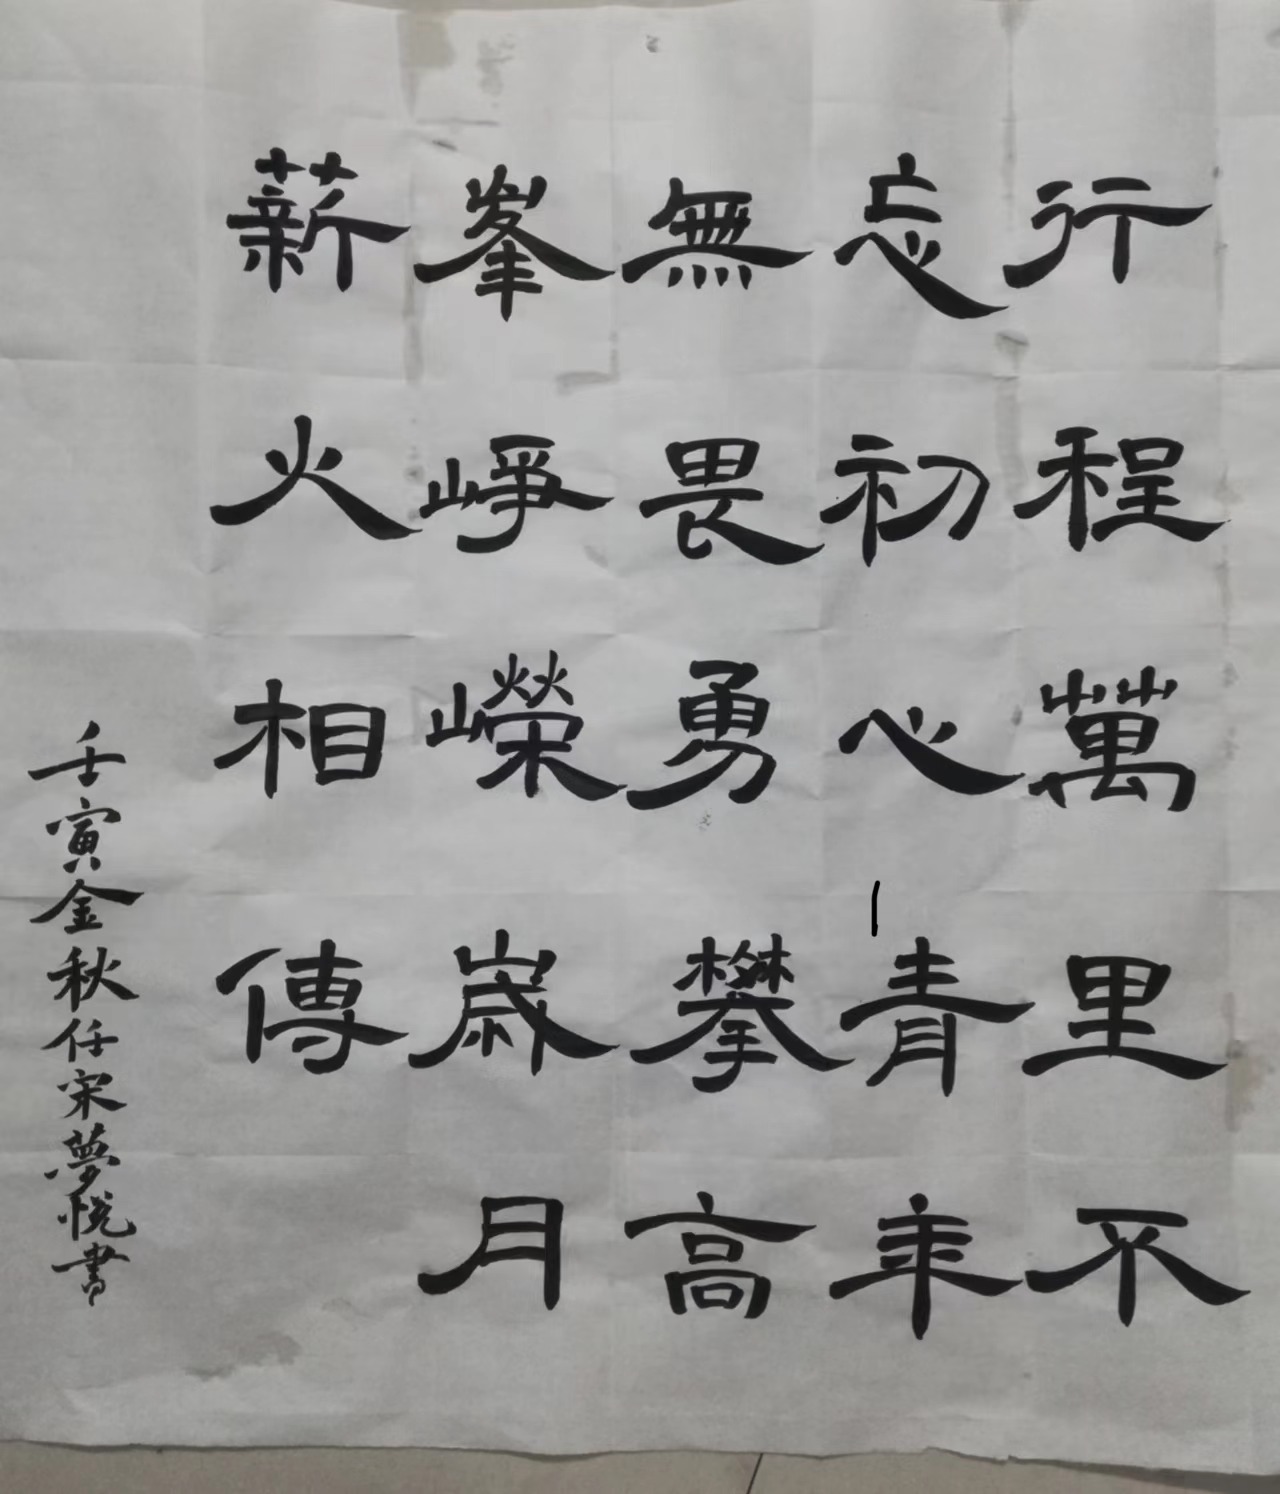 行程萬里不
忘初心青年
無畏勇攀高
峯崢嶸歲月
薪火相傳
壬寅金秋任宋夢悅書